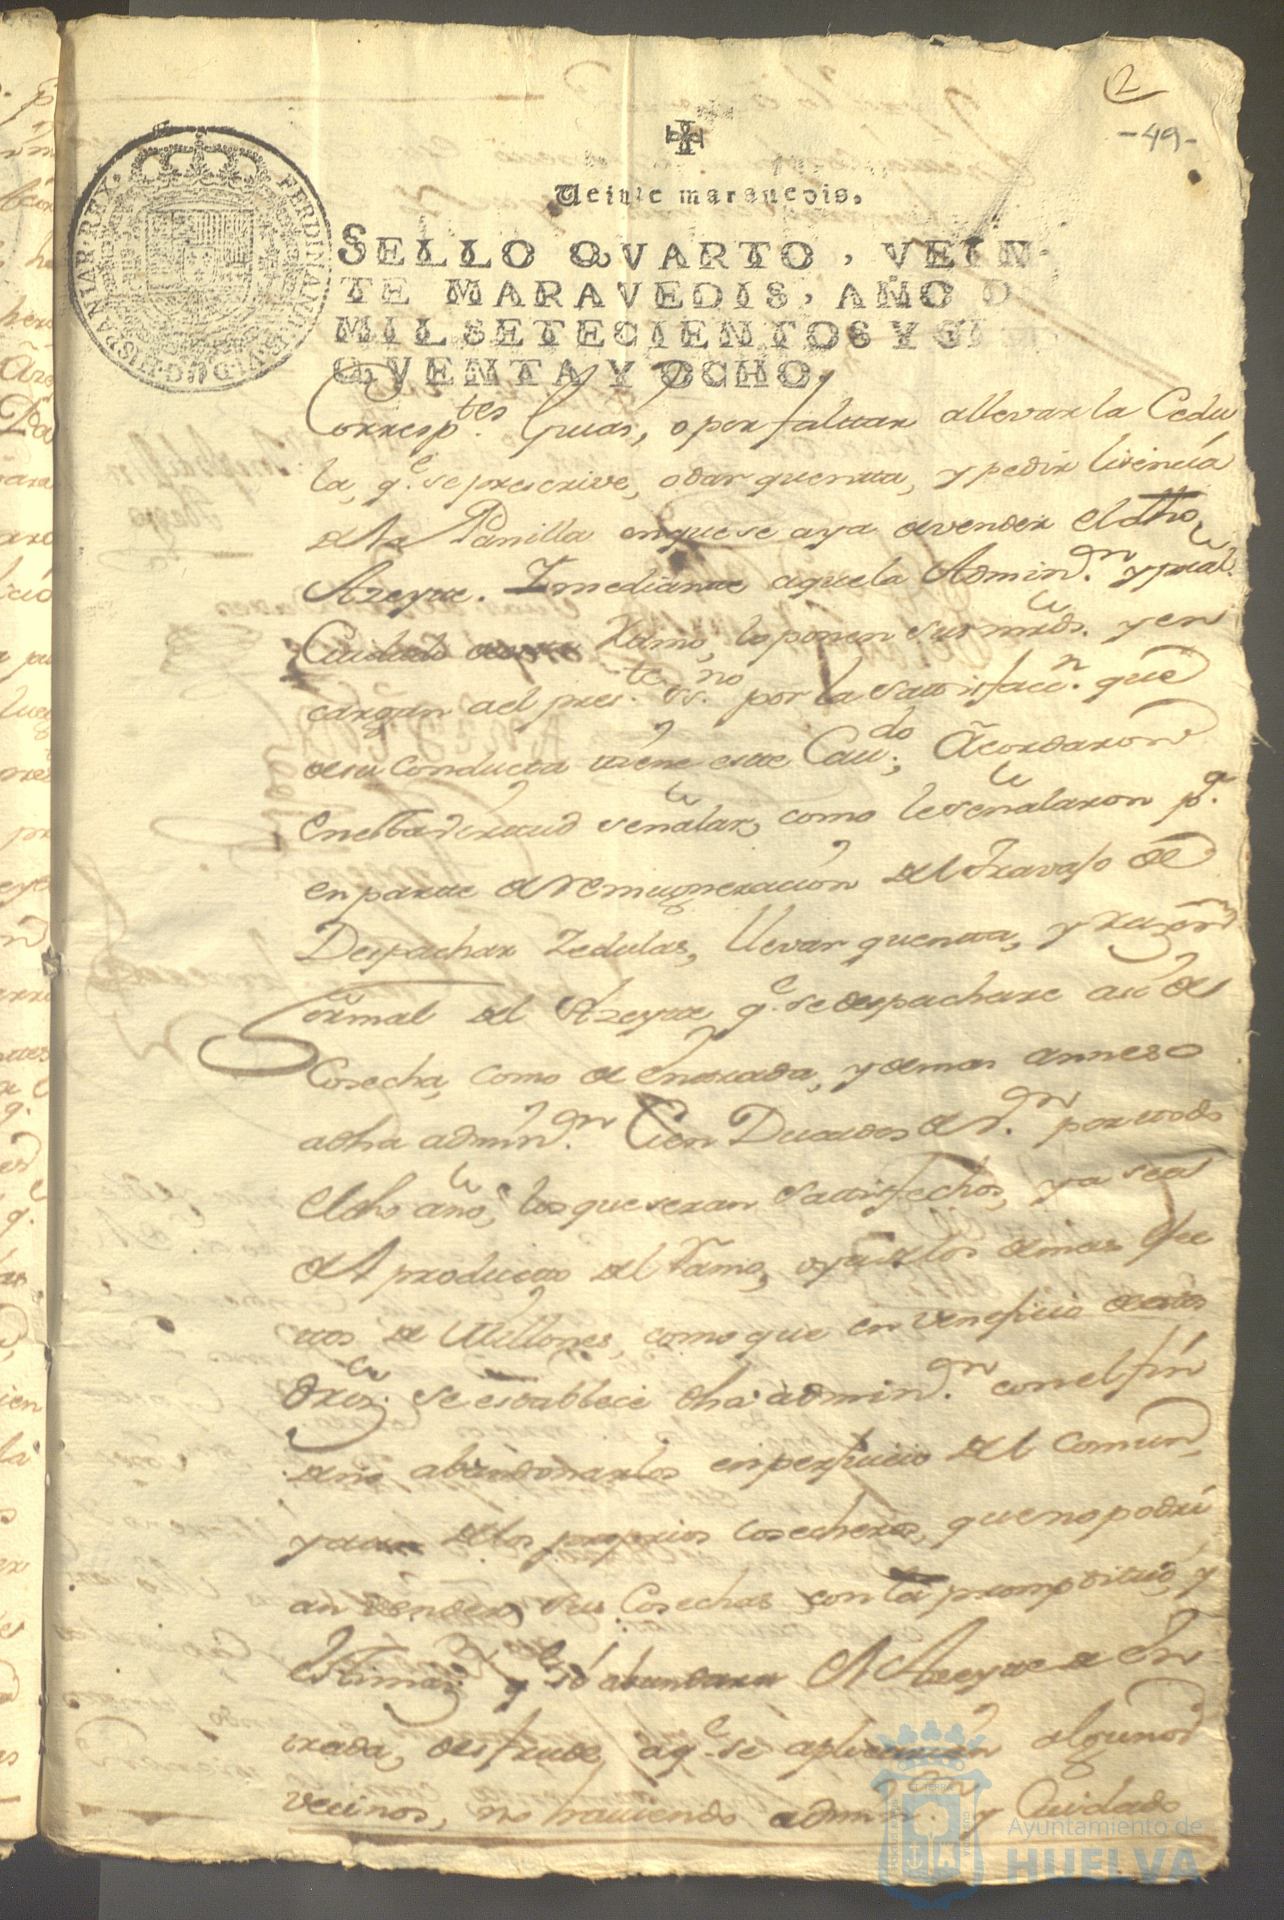 2
-49-
Veinte maravedis.
SELLO QVARTO, VEIN
TE MARAVEDIS, AÑO D
MIL SETECIENTOS Y CIN
QVENTA Y OCHO.
FERDINANDUS VI D G HISPANIAR REX
Corresp.tes Guias, o por faltar allevar la Cedu
la, q.e se prescrive, o dar quentta, y pedir lizencia
de la Panilla en que se aya de vender el dho
Azeyte. Y mediante aquela Admin.on y pral.
Cuidado Ramo, lo ponen sus mrds. y en
cargan a el pres.te ss.no por la sattisfacc.n que
de su conducta tiene este Cav.do, Acordaron
en esta señalar, como le señalaron p.a
en partte de remuneracion del travajo de
Despachar Zedulas, llevar quentta, y razon
formal del Azeyte q.e se despachare asi de
Cosecha, como de Entrada, y demas annexo
a dha admin.on Cien Ducados de v.on por todo
el dho año, los que seran sattisfechos, ya sea
del productto del Ramo, o ya de los demas efec
ttos de Millones, como que en veneficio de estos
dros. se establece dha admin.on con el fin
de no abandonarlos en perjuicio del comun,
y aun de los proprios cosecheros, que no podri
an vender sus Cosechas con la promptitud, y
estimaz.on q.e si abundara el Azeyte de En
trada, desfrude, a q.e se aplicarian algunos
vecinos, no haviendo admin.on y Cuidado
Ayuntamiento de
HUELVA